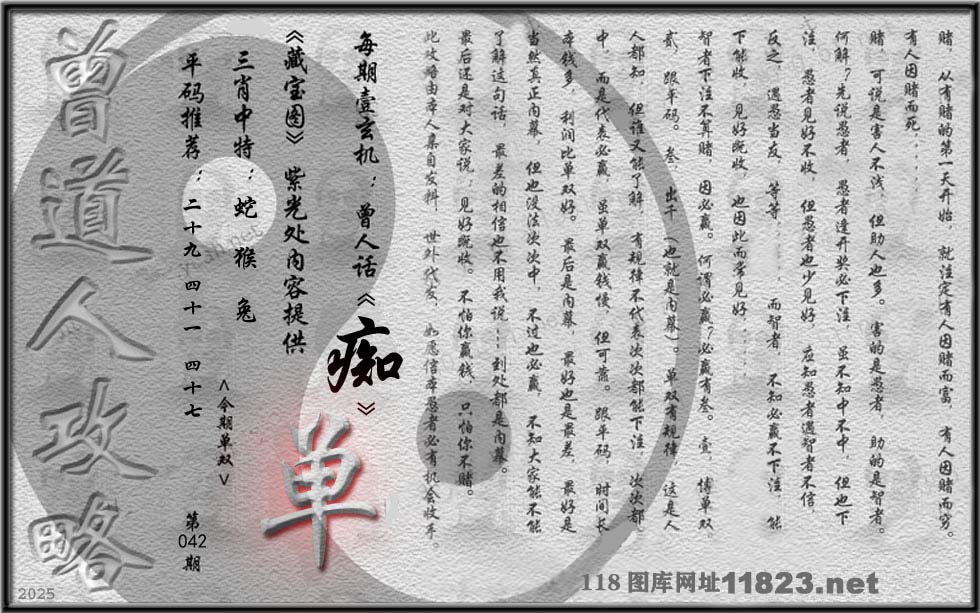 赌，从有赌的第一天开始，就注定有人因赌而富，有人因赌而穷。
有人因赌而死……
赌，可说是害人不浅，但助人也多。害的是愚者，助的是智者。
何解？先说愚者，愚者逢开奖必下注，虽不知中不中，但也下
注，愚者见好不收，但愚者也少见好，应知愚者遇智者不信，
反之，遇愁当友，等等……而智者，不知必赢不下注，能
下能收，见好既收，也因此而常见好……
智者下注不算赌，因必赢。何谓必赢？必赢有叁。壹，博单双，
贰，跟平码。叁，出千（也就是内幕）。单双有规律，这是人
人都知，但谁又能了解，有规律不代表次次都能下注，次次都
中，而是代表必赢，虽单双赢钱慢，但可靠。跟平码，时间长，
本钱多，利润比单双好。最后是内幕，最好也是最差，最好是
当然真正内幕，但也没法次次中，不过也必赢，不知大家能不能
了解这句话，最差的相信也不用我说……到处都是内幕。
最后还是对大家说：见好既收。不怕你赢钱，只怕你不赌。
此攻略由本人集自发料，世外代友，如愿信本愚者必有机会收手。
每期壹玄机：曾人话《痴》
《藏宝图》紫光处内容提供
三肖中特：蛇 猴 兔
平码推荐：二十九 四十一 四十七
<今期单双>
单
第042期
曾道人攻略
2025
118 图库网址11823.net